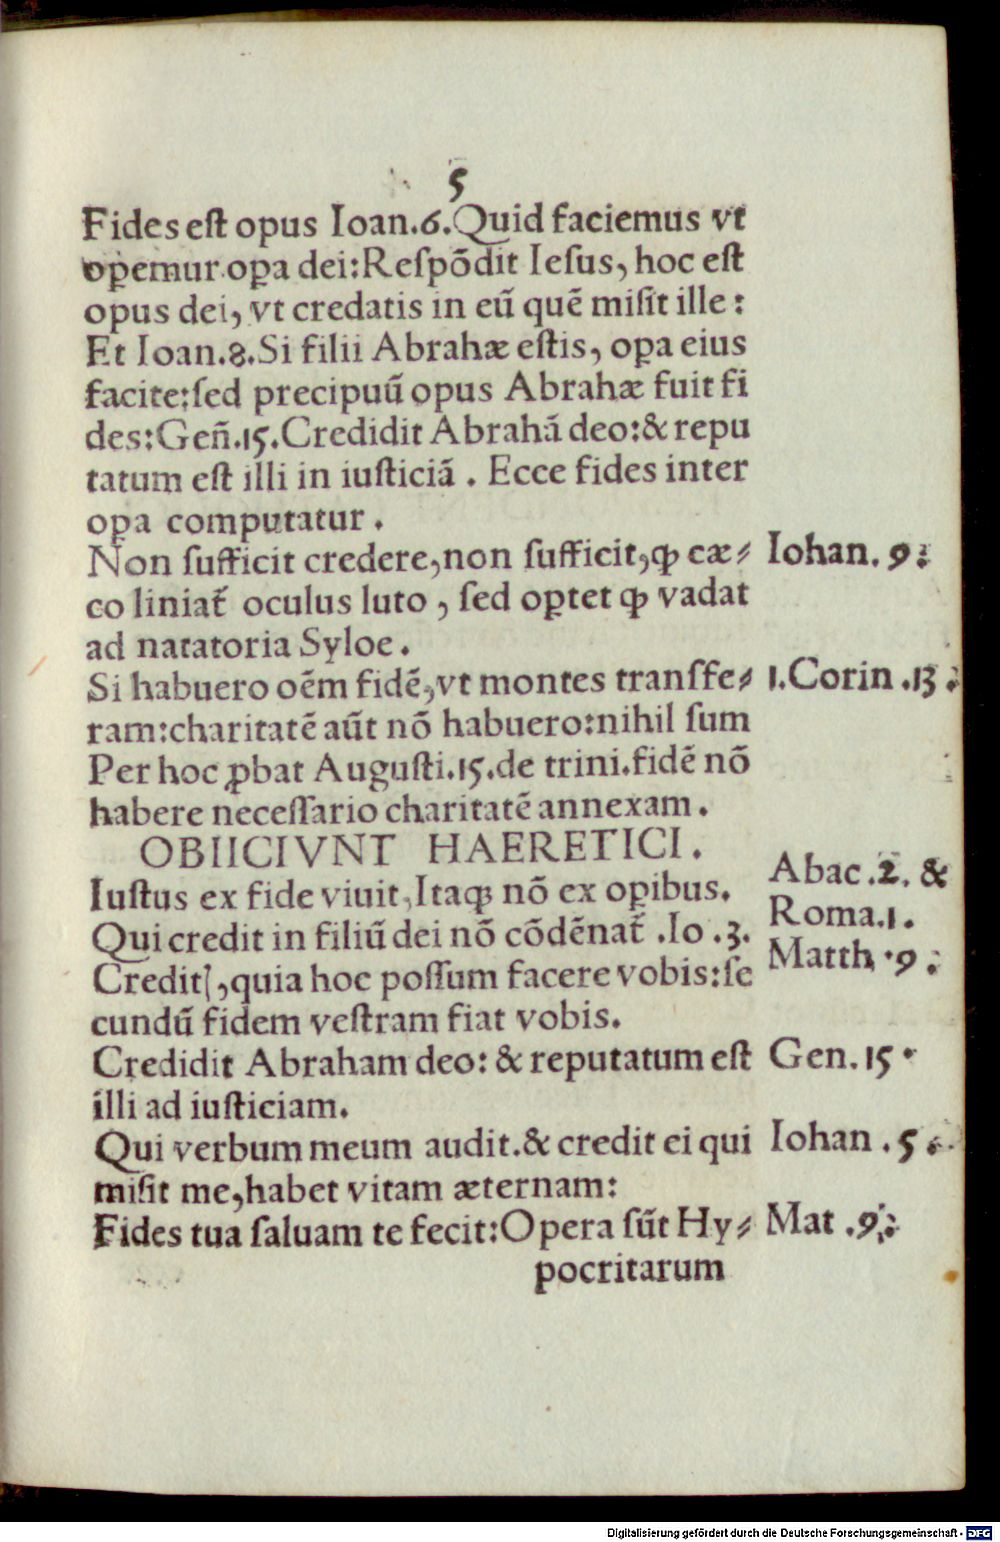 5
Fides eſt opus Ioan.6.Quid faciemus vt
oꝑemur oꝑa dei:Reſpōdit Ieſus, hoc eſt
opus dei, vt credatis in eū quē miſit ille:
Et Ioan.8.Si filii Abrahæ eſtis, oꝑa eius
facite:ſed precipuū opus Abrahæ fuit fi
des:Geñ.15.Credidit Abrahā deo:& repu
tatum eſt illi in iuſticiā . Ecce fides inter
oꝑa computatur .
Non ſufficit credere,non ſufficit,ꝙ cæ⸗ Iohan. 9.
co liniat᷑ oculus luto , ſed oꝑtet ꝙ vadat
ad natatoria Syloe .
Si habuero oēm fidē,vt montes tranſfe⸗ 1.Corin .13.
ram:charitatē aūt nō habuero:nihil ſum
Per hoc ꝓbat Auguſti.15.de trini.fidē nō
habere neceſſario charitatē annexam .
OBIICIVNT HAERETICI .
Iuſtus ex fide viuit,Itaqꝫ nō ex oꝑibus. Abac .2. & Roma.1.
Qui credit in filiū dei nō cōdēnat᷑ .Io .3.
Credit,quia hoc poſſum facere vobis:ſe Matth .9.
cundū fidem veſtram fiat vobis.
Credidit Abraham deo: & reputatum eſt Gen. 15.
illi ad iuſticiam.
Qui verbum meum audit.& credit ei qui Iohan . 5.
miſit me,habet vitam æternam:
Fides tua ſaluam te fecit:Opera ſūt Hy⸗ Mat .9.
pocritarum
Digitalisierung gefördert durch die Deutsche Forschungsgemeinschaft - DFG